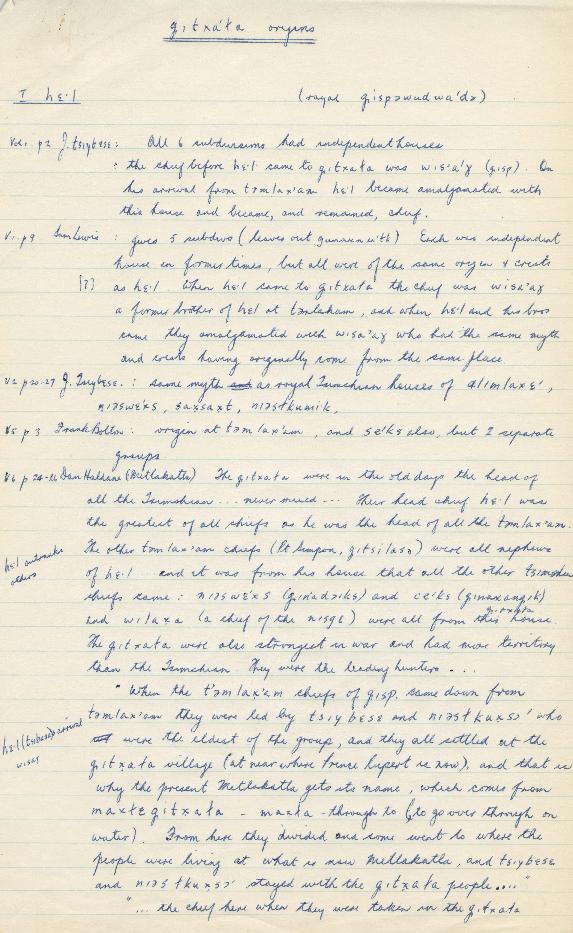 gitxáɫa origins
I hɛ·l (royal gispəwudwa'də)
Vol 1. p 2 J. tsiybɛsɛ: All 6 subdivisions had independent houses
: the chief before hɛ·l came to gitxaɫa was wisa'aɣ (gisp). On
his arrival from təmlax'am hɛ·l became amalgamated with
this house and became, and remained, chief.
V.1. p 9 Sam Lewis : gives 5 subdivs (leaves out ) Each was independent
house in former times, but all were of the same origin & crests
[?] as hɛ·l. When hɛ·l came to gitxaɫa the chief was wisa'aɣ
a former brother of hɛ·l at təmlaham, and when hɛ·l and his bros
came they amalgamated with wisa'aɣ who had the same myth
and crests having originally come from the same place
V2 p 20-27 J. Tsiybɛsɛ. : same myth as royal Tsimshian houses of
niəswɛ'xs, saxsaxt, niəstkumik,
V5 p 3 Frank Bolton : origin at təmlax'am, and sɛ'ks also, but I separate
groups
V6 p 24-26 Dan Haldane (Metlakatla) The gitxaɫa were in the old days the head of
all the Tsimshian ... never mixed ... Their head chief hɛ·l was
the greatest of all chiefs as he was the head of all the təmlax'am.
hɛ·l outranks others
The other təmlax'am chiefs (Pt Simpson, gitsilasə) were all nephews
of hɛ·l ... and it was from his house that all the other Tsimshian
chiefs came : niəswɛ'xs (ginadəiks) and cɛ'ks (ginaxangik)
and wilaxa (a chief of the nisgɛ) were all from this gitxaɫa house.
The gitxaɫa were also strongest in war and had more territory
than the Tsimshian. They were the leading hunters ...
" When the t'əmlax'am chiefs of gisp. came down from
təmlax'am they were led by tsiybɛsɛ and niəstkuxsə' who
hɛ·l (tsibɛsɛ) arrival
were the eldest of the group, and they all settled at the
gitxaɫa village (at near where Prince Rupert is now), and that is
why the present Metlakatla gets its name, which comes from
maxɫɛgitxaɫa - maxɫa - through to (to go over through on
water). From here they divided and some went to where the
people were living at what is now Metlakatla, and tsiybɛsɛ
and niəstkuxsə' stayed with the gitxaɫa people...."
"... the chief here when they were taken in the gitxaɫa